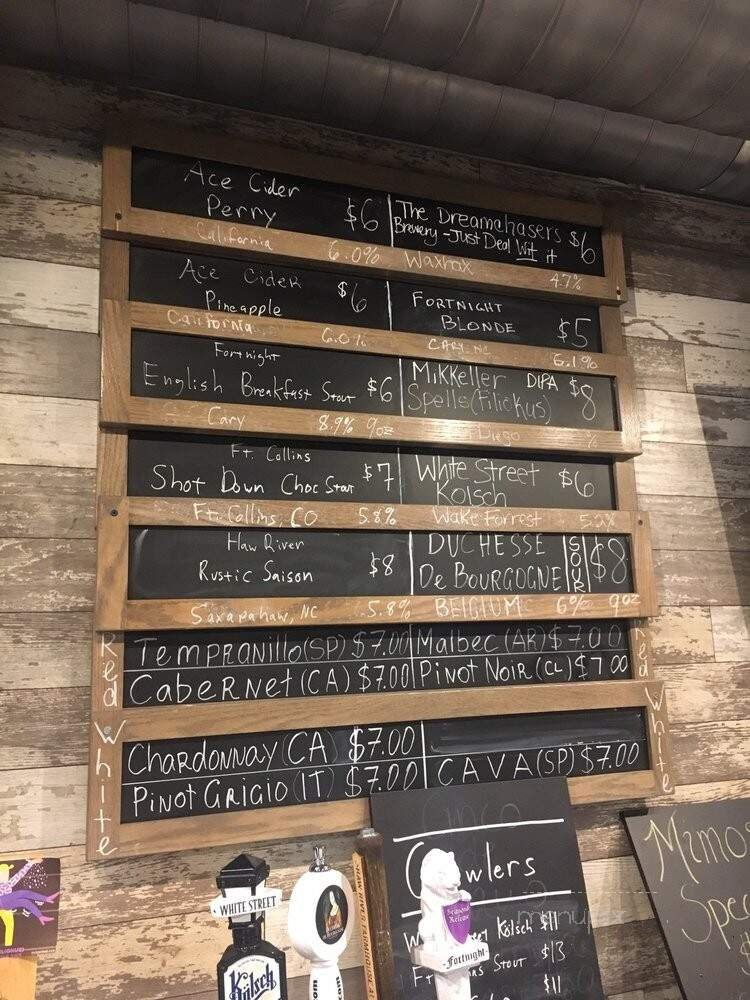 Ace Cider
Perry $6
California 6.0%
The Dreamchasers
Brewery - Just Deal Wit it $6
Waxhax 4.7%
Ace Cider
Pineapple $6
California 6.0%
FORTNIGHT
BLONDE $5
CARY, NC 6.1%
Fortnight
English Breakfast Stout $6
Cary 8.9% 9oz
MiKKeller DIPA $8
Spells (Filickus)
Diego %
Ft. Collins
Shot Down Choc Stout $7
Ft. Collins, CO 5.8%
White Street
Kolsch $6
Wake Forrest 5.2%
Haw River
Rustic Saison $8
Saxapahaw, NC 5.8%
DUCHESSE
De BOURGOGNE SOUR $8
BELGIUM 6% 9oz
Red
Tempranillo (SP) $7.00 Malbec (AR) $7.00
Cabernet (CA) $7.00 Pinot Noir (CL) $7.00
Red
White
Chardonnay (CA) $7.00
Pinot Grigio (IT) $7.00 CAVA (SP) $7.00
White
wlers
Kölsch $11
Stout $13
$11
Mimo
Spec
WHITE STREET
Kölsch
Seasonal
Release
Fortnight